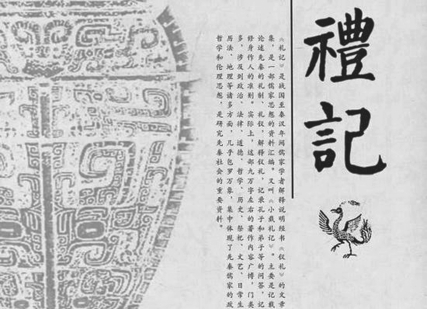 禮記
《礼记》是战国至秦汉年间儒家学者解释说明经书《仪礼》的文章
集,是一部儒家思想的资料汇编。又叫《小戴礼记》。主要是记载
论述先秦的礼制、礼仪,解释仪礼,记录孔子和弟子等的问答,记
修身作人的准则。实际上,这部九万字左右的著作内容广博,门类
多,涉及到政治、法律、道德、哲学、历史、祭祀、文艺、日常生
历法、地理等诸多方面,几乎包罗万象,集中体现了先秦儒家的政
哲学和伦理思想,是研究先秦社会的重要资料。